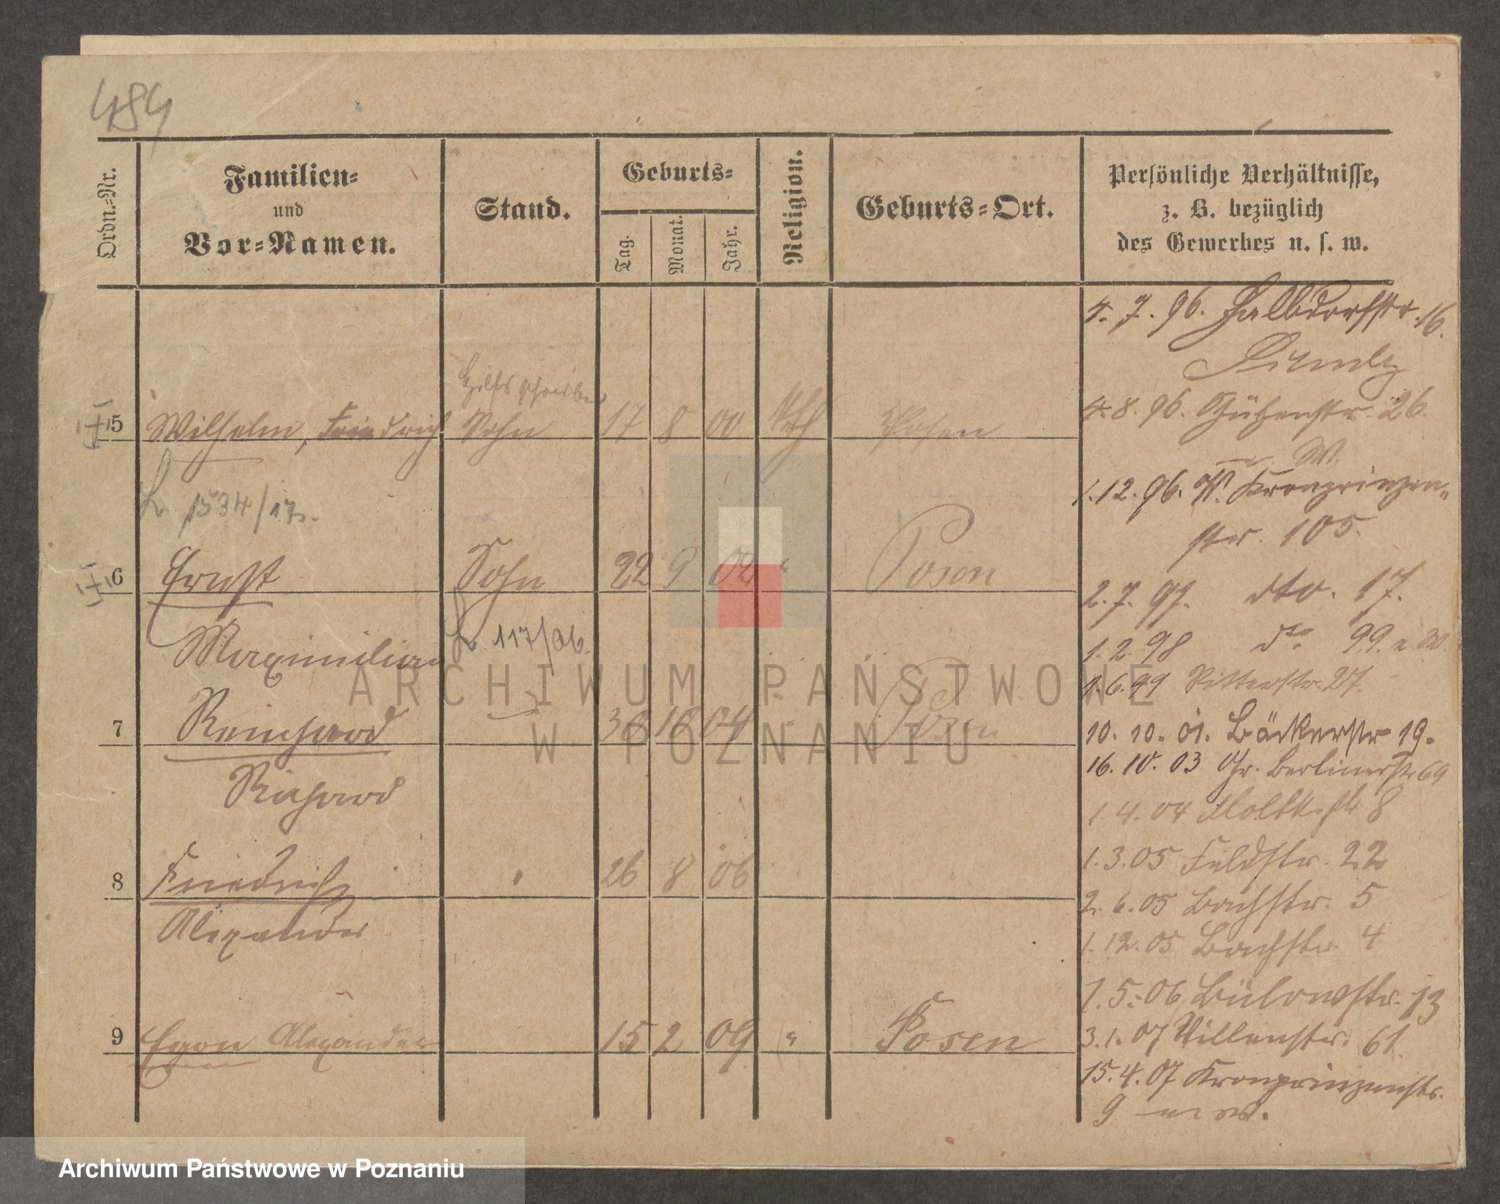 484
Ordn.-Nr.
Familien-
und
Vor-Namen.
Stand.
Geburts-
Tag.
Monat.
Jahr.
Religion.
Geburts-Ort.
Persönliche Verhältnisse,
z. B. bezüglich
des Gewerbes u. s. w.
4. 7. 96. Halbdorfstr. 16.
Hilfsschreiber
5 Wilhelm, Friedrich Sohn 17 8 00 Posen
4. 8. 96. 26.
L. 1534/17.
1.12. 96. W. Kronprinzen-
str. 105.
6 Ernst Sohn 22 9 02 " Posen
2. 7. 97. dto. 17.
Maximilian
L. 117/06.
1. 2. 98 do 99.
1. 6. 99 Ritterstr. 27
7 Reinhard 04 Posen
10. 10. 01. Bäckerstr 19.
16. 10. 03 Gr. Berlinerstr 69
Richard
1. 4. 04 Moltkestr 8
1. 3. 05 Feldstr. 22
8 Friedrich " 26 8 06
2. 6. 05 Bachstr. 5
Alexander
1. 12. 05 Bachstr. 4
1. 5. 06 Bülowstr. 13
9 Egon Alexander 15 2 09 " Posen
3. 1. 07 Villenstr. 61.
15. 4. 07 Kronprinzenstr.
9
ARCHIWUM PAŃSTWOWE
W POZNANIU
Archiwum Państwowe w Poznaniu